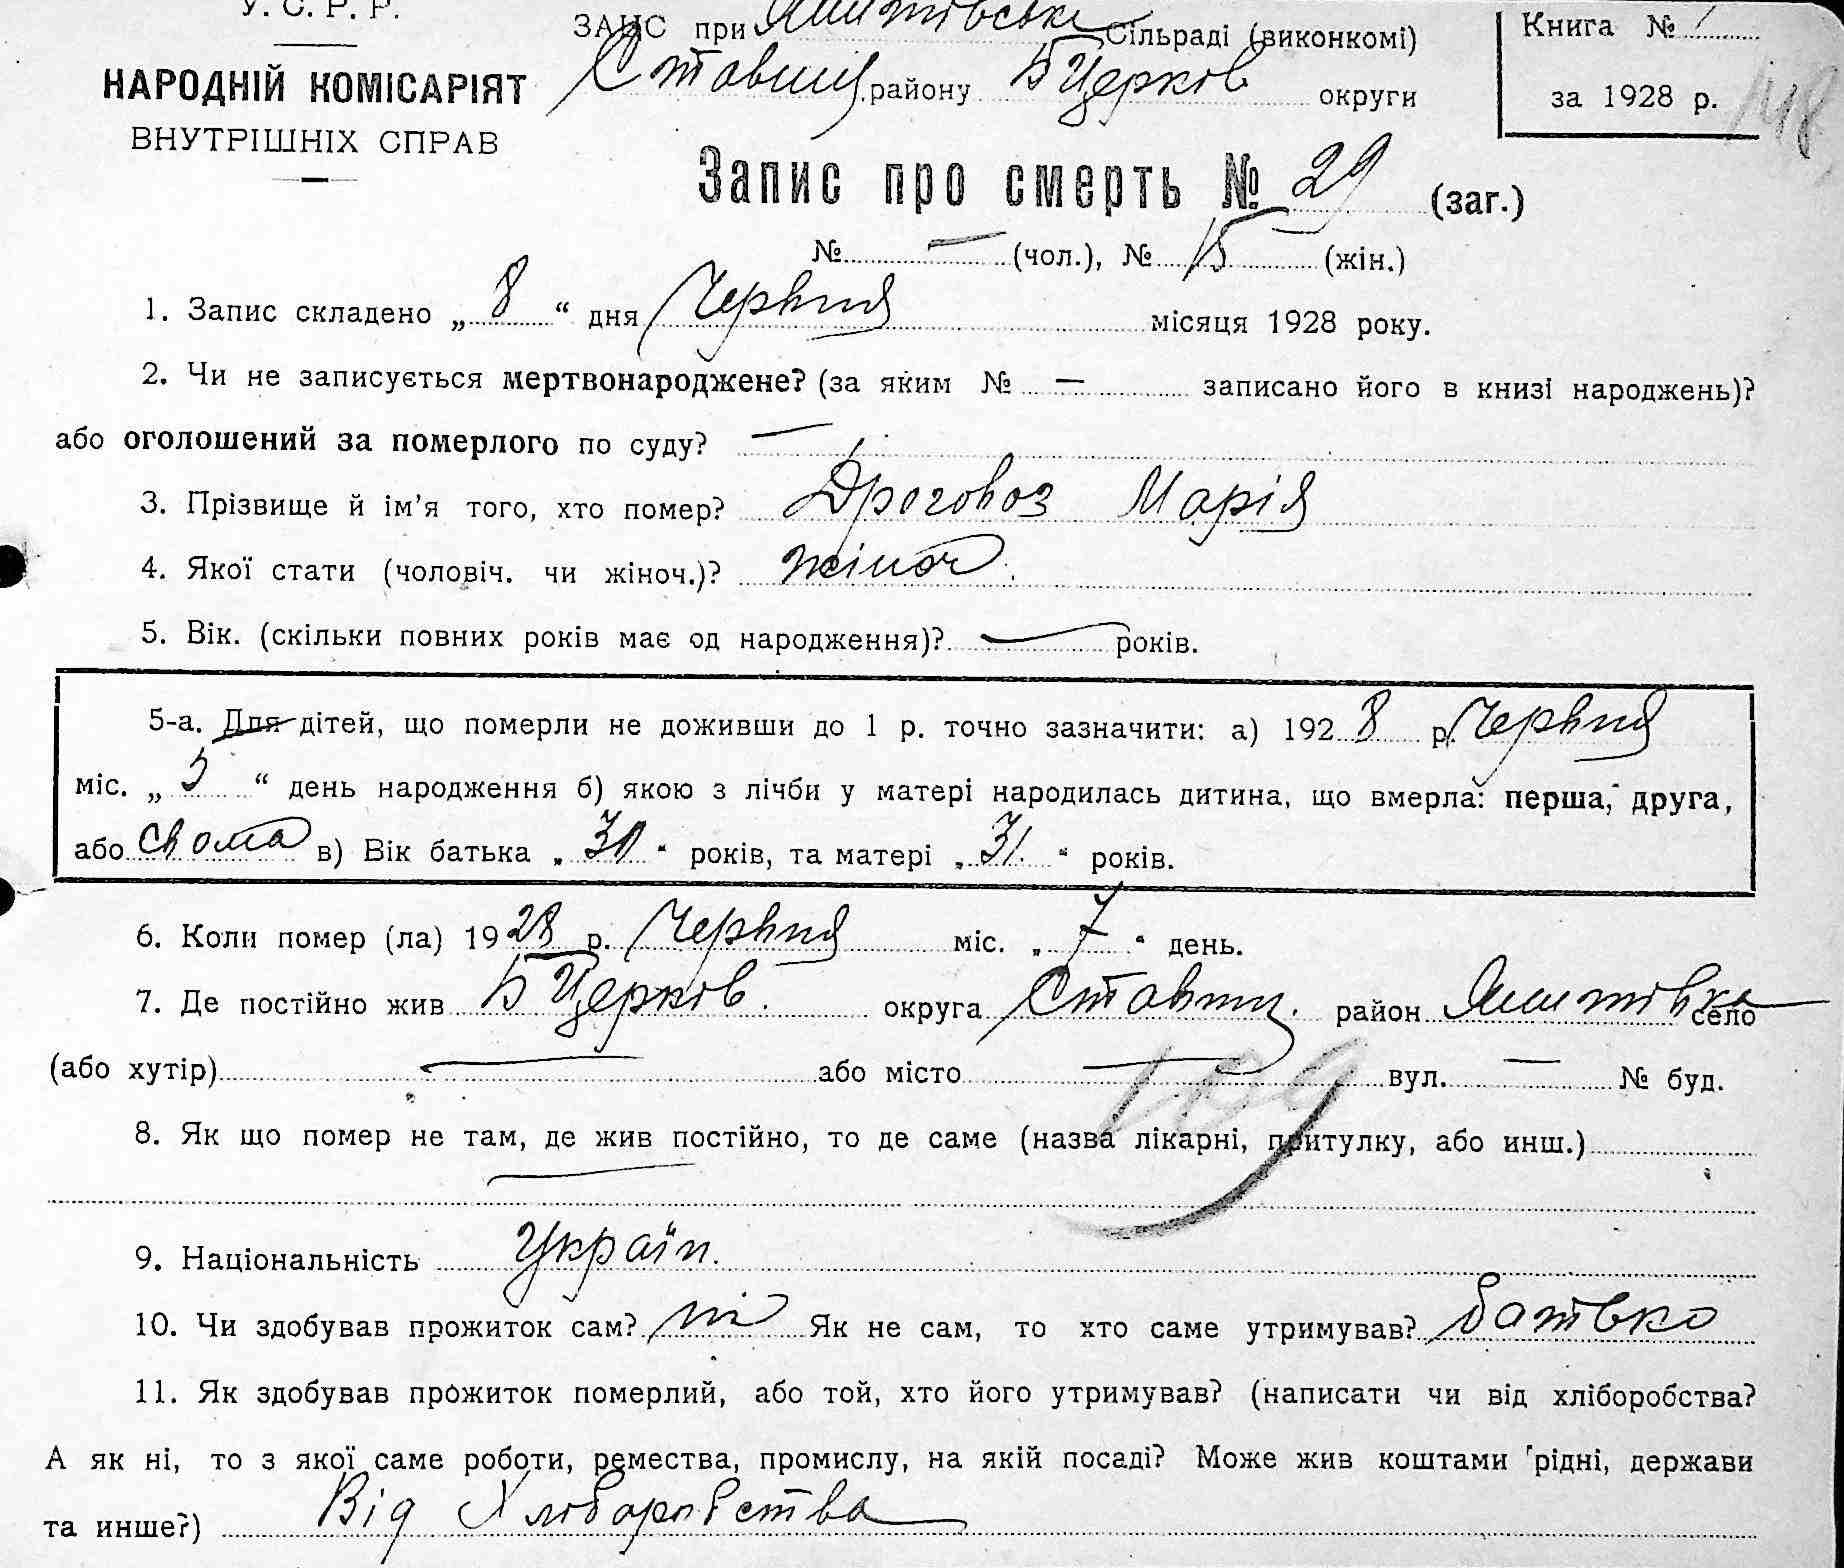 У. С. Р. Р.
НАРОДНІЙ КОМІСАРІЯТ
ВНУТРІШНІХ СПРАВ
ЗАЦС при Яшптівські Сільраді (виконкомі)
Ставищ. району БЦерков округи
Книга № 1
за 1928 р.
148
Запис про смерть № 29 (заг.)
№ — (чол.), № 15 (жін.)
1. Запис складено „ 8 “ дня Червня місяця 1928 року.
2. Чи не записується мертвонароджене? (за яким № — записано його в книзі народжень)?
або оголошений за померлого по суду? —
3. Прізвище й ім'я того, хто помер? Дроговоз Марія
4. Якої стати (чоловіч. чи жіноч.)? жіноч.
5. Вік. (скільки повних років має од народження)? — років.
5-а. Для дітей, що померли не доживши до 1 р. точно зазначити: а) 1928 р. Червня
міс. „ 5 “ день народження б) якою з лічби у матері народилась дитина, що вмерла: перша, друга,
або сьома в) Вік батька „ 30 “ років, та матері „ 31 “ років.
6. Коли помер (ла) 1928 р. Червня міс. „ 7 “ день.
7. Де постійно жив БЦерков. округа Ставищ. район село
(або хутір) — або місто — вул. — № буд.
8. Як що помер не там, де жив постійно, то де саме (назва лікарні, притулку, або инш.)
—
9. Національність Україн.
10. Чи здобував прожиток сам? ні Як не сам, то хто саме утримував? батько
11. Як здобував прожиток померлий, або той, хто його утримував? (написати чи від хліборобства?
А як ні, то з якої саме роботи, ремества, промислу, на якій посаді? Може жив коштами рідні, держави
та инше?) Від Хліборобства